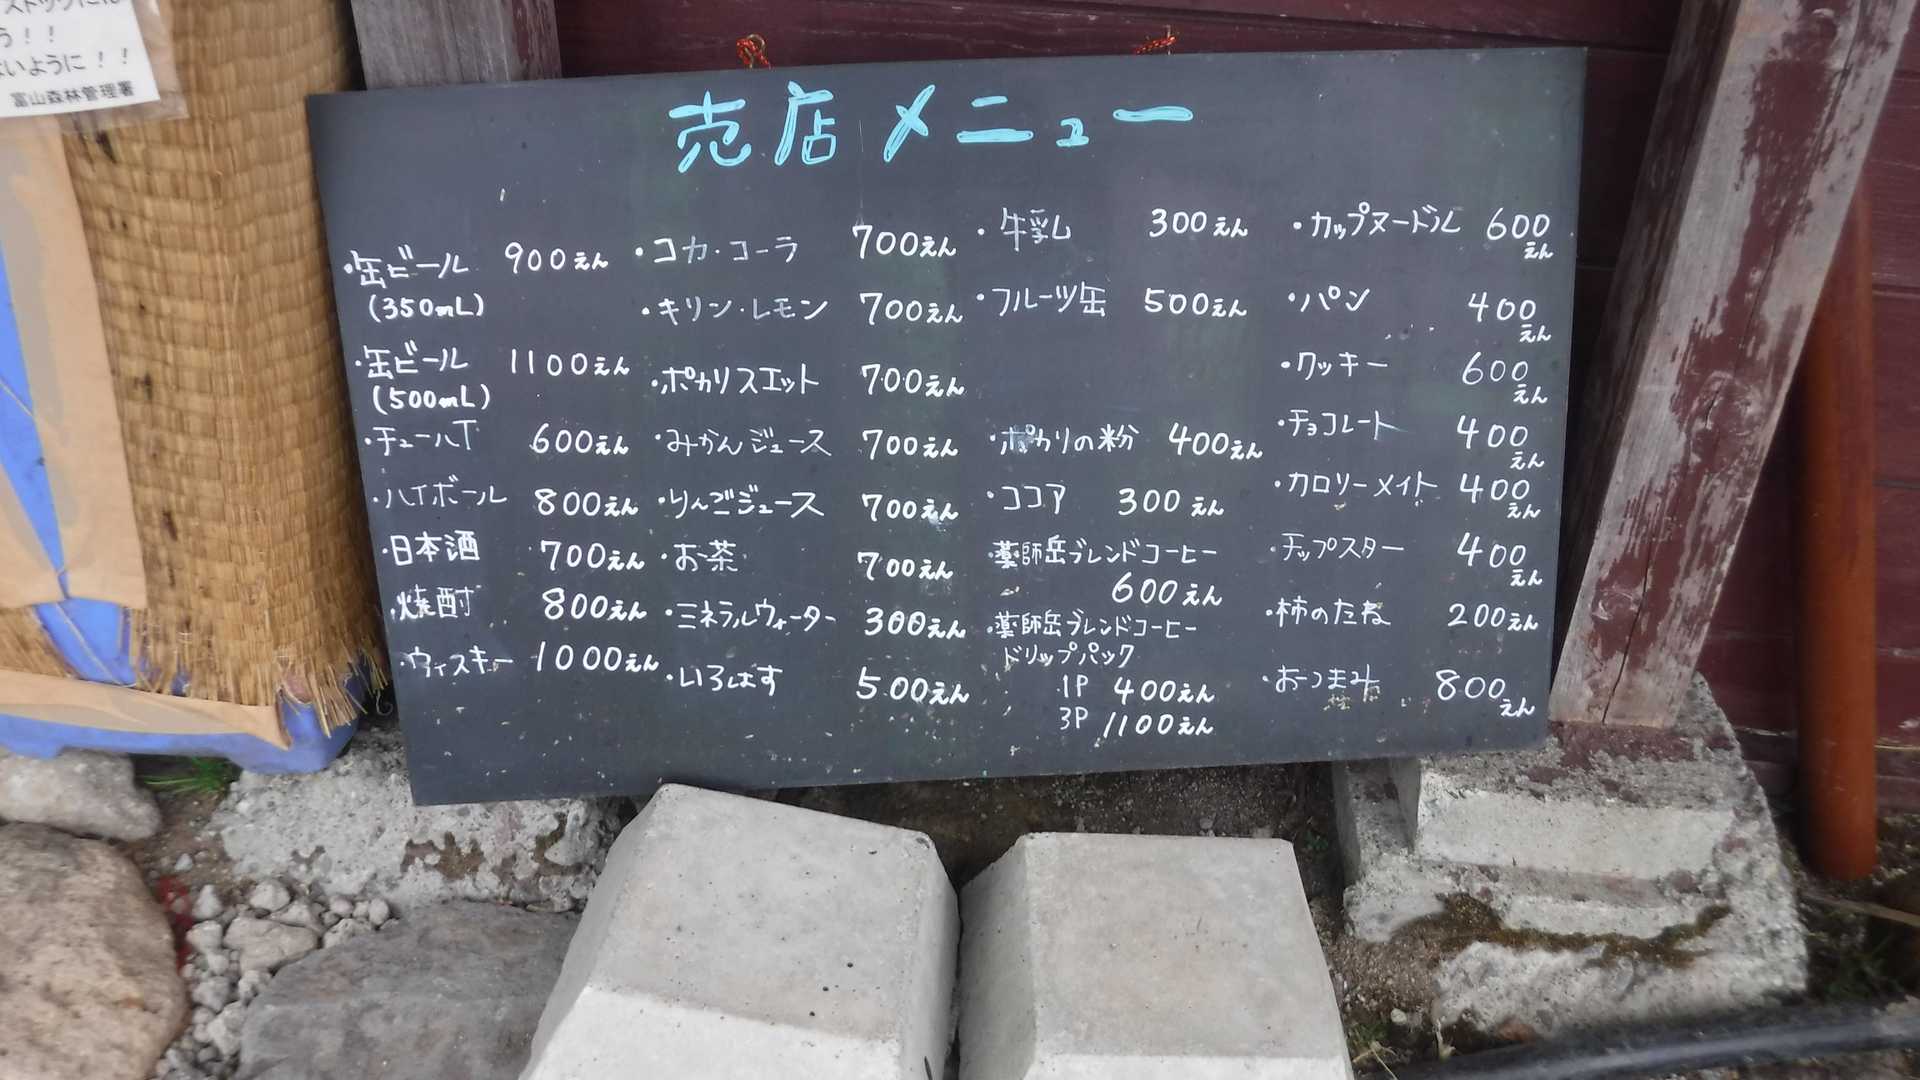 う！！
ないように！！
富山森林管理署
売店メニュー
・缶ビール 900えん
(350mL)
・缶ビール 1100えん
(500mL)
・チューハイ 600えん
・ハイボール 800えん
・日本酒 700えん
・焼酎 800えん
・ウィスキー 1000えん
・コカ・コーラ 700えん
・キリン・レモン 700えん
・ポカリスエット 700えん
・みかんジュース 700えん
・りんごジュース 700えん
・お茶 700えん
・ミネラルウォーター 300えん
・いろはす 500えん
・牛乳 300えん
・フルーツ缶 500えん
・ポカリの粉 400えん
・ココア 300えん
・薬師岳ブレンドコーヒー
600えん
・薬師岳ブレンドコーヒー
ドリップパック
1P 400えん
3P 1100えん
・カップヌードル 600えん
・パン 400えん
・クッキー 600えん
・チョコレート 400えん
・カロリーメイト 400えん
・チップスター 400えん
・柿のたね 200えん
・おつまみ 800えん